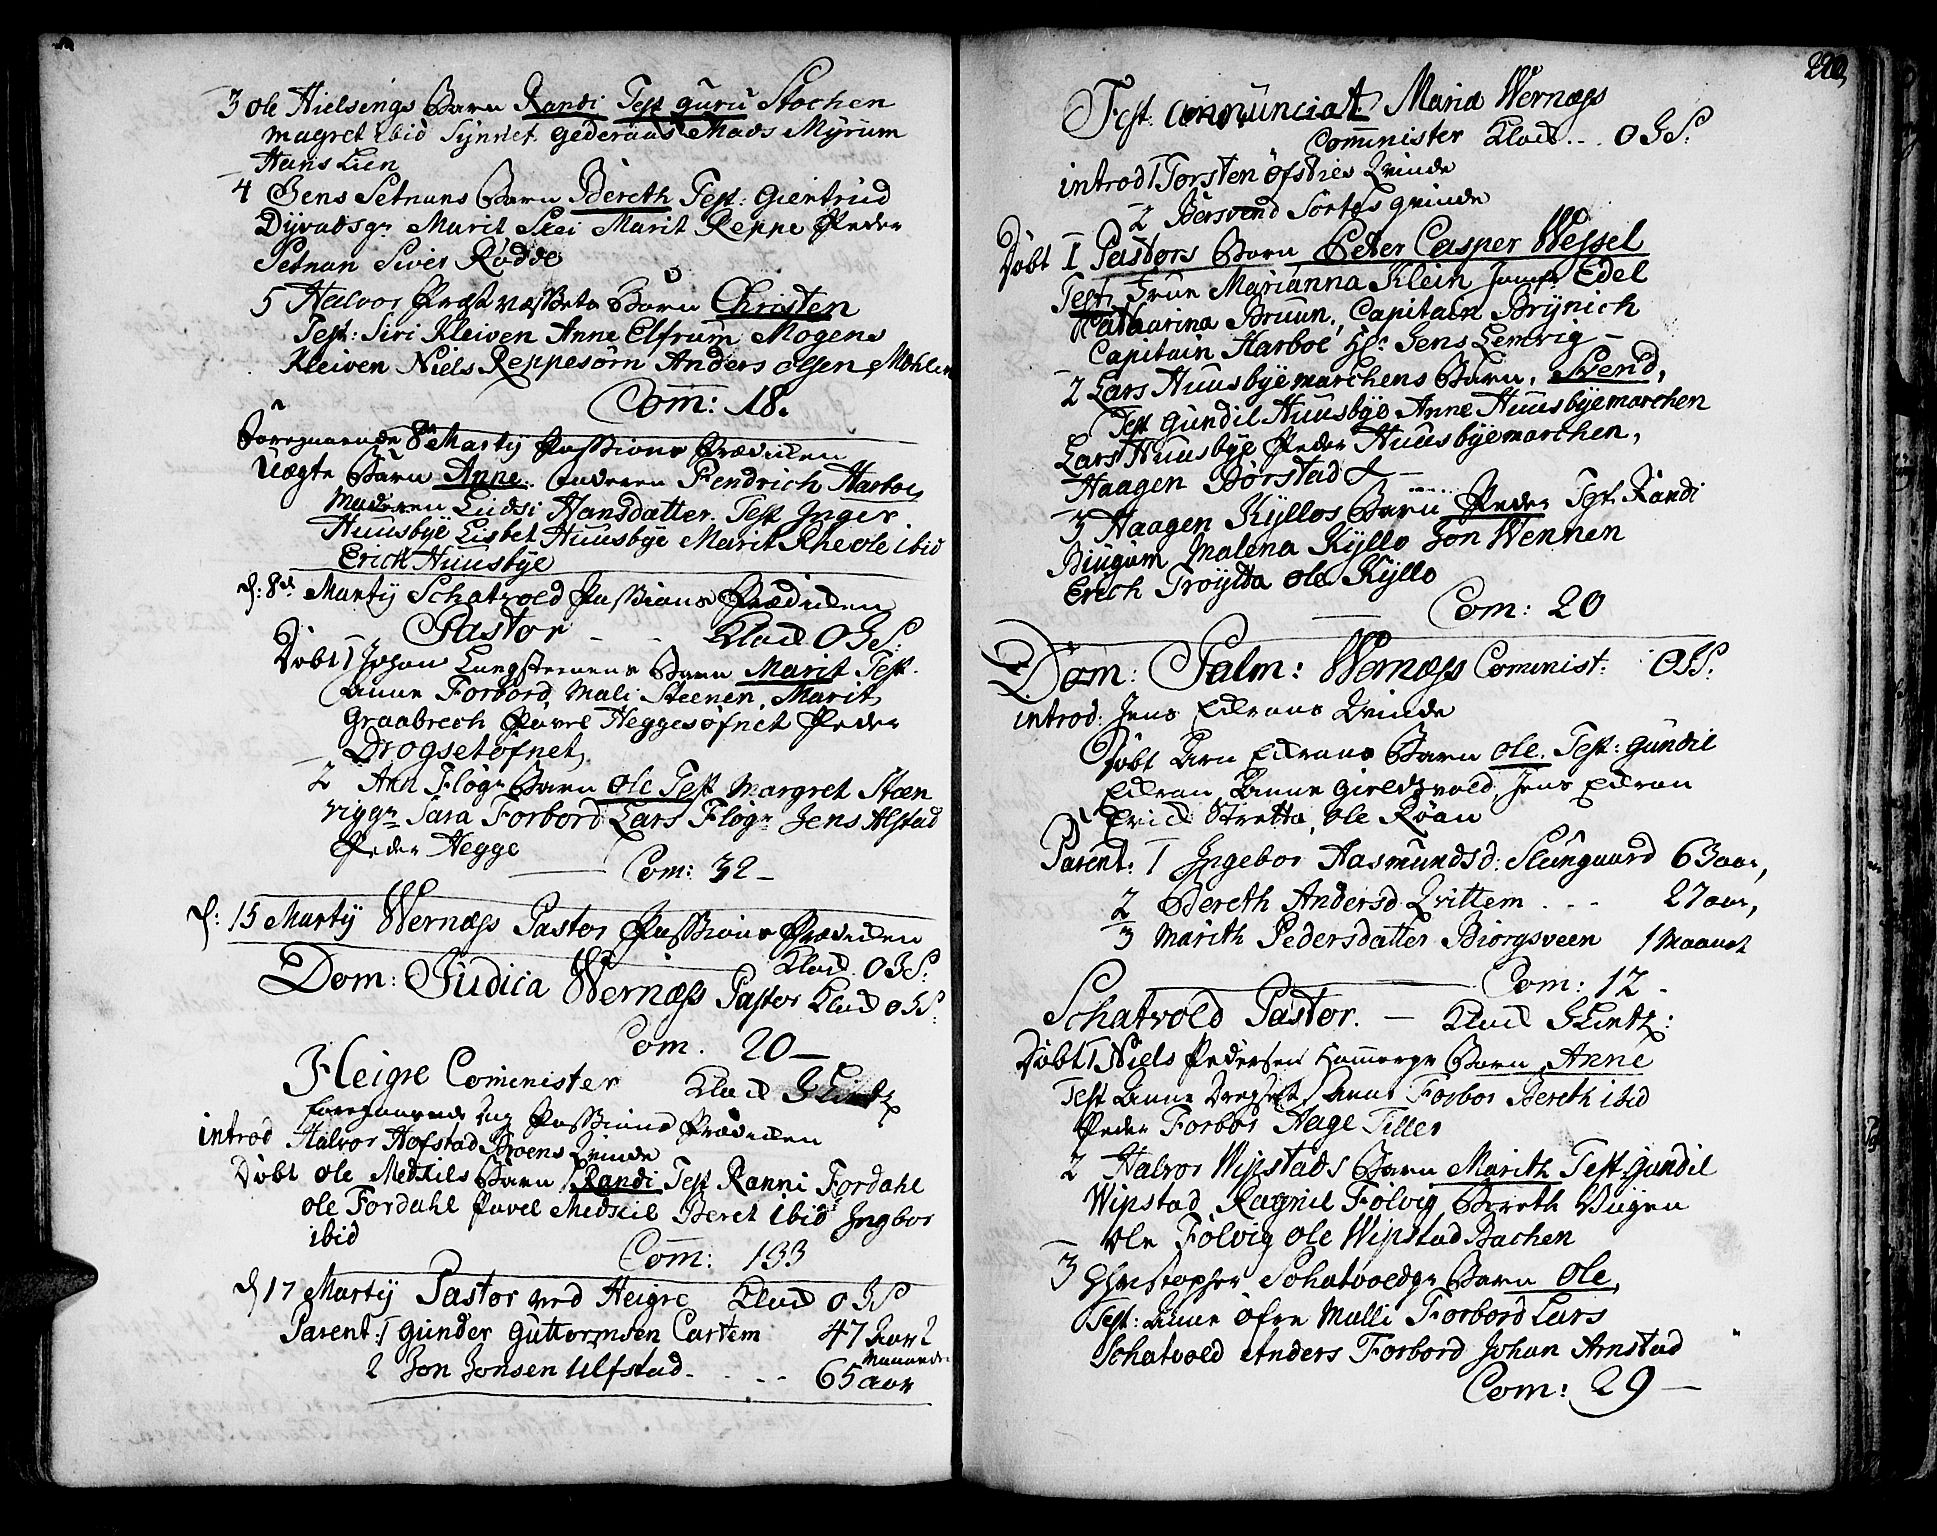 3 Ole Hielsengs Barn Randi Test Guru Stochen
Magret ibid Synnet Gederaas Mads Myrum
Hans Lien
4 Jens Setnans Barn Bereth Test: Giertrud
Dyvadsgr Marit Slei Marit Reppe Peder
Setnan Siver Rødde
5 Halvor Barn Christen
Test: Siri Kleiven Anne Elfrum Mogens
Kleiven Niels Reppesørn Anders Olsen Møhlen
Com: 18.
Foregaaende 8de Martij Passions Prædiken
Uægte Barn Anne. Faderen Fendrich Harboe
Moderen Ludsi Hansdatter. Test Inger
Huusbye Lisbet Huusbye Marit Rhe ole ibid
Erich Huusbye
d: 8de Martij Schatvold Passions Prædiken
Pastor - - Klock O S:
Døbt 1 Johan Langsteenens Barn Marit Test.
Anne Forbord, Mali Steenen, Marit
Graabrech Pavel Heggesøfnet Peder
Drogsetøfnet
2 Arn Fløgr Barn Ole Test Margret Steen
viggn Sara Forbord Lars Fløgr Jens Alstad
Peder Hegge
Com: 32 -
d: 15 Martij Wernæs Pastor Passions Prædiken
Klock. O S:
Dom: Judica Wernæss Pastor Klock O S:
Com. 20 -
Heigre Cominister Klock Glintz
foregaaende Dag Passions Prædiken
introd Halvor Hofstad Kvinde
Døbt Ole Medkiels Barn Randi Test Ranni Fordahl
Ole Fordahl Pavel Medkiel Beret ibid Ingbor
ibid
Com: 133
d 17 Martij Pastor ved Heigre Klock O S
Parent: 1 Gunder Guttormsen Cartem 47 Aar 2
Maaneder
2 Jon Jonsen Ulfstad. - - - 65 aar
220,
Fest: Annunciat Maria Wernæss
Cominister Klock... O S:
introd 1 Torsten Øfsties Kvinde
2 Bersvend Sortes qvinde
Døbt 1 Pastors Barn Peter Casper Wessel
Test, Frue Marianna Klein Jomfr Edel
Katharina Bruun, Capitain Brynich
Capitain Harboe Hr: Jens Lemvig -
2 Lars Huusbyemarchens Barn, Svend,
Test Gundil Huusbye Anne Huusbyemarchen
Lars Huusbye Peder Huusbyemarchen,
Haagen Børstad -
3 Haagen Kyllos Barn Peder Test. Randi
Biugum Malena Kyllo Jon Wennen
Erich Trøytta Ole Kyllo
Com: 20
Dom: Palm: Wernæss Cominist: O S:
introd: Jens Eidrans Kvinde
Døbt Arn Eidrans Barn Ole. Test: Gundil
Eidran, Anne Gieldsvold, Jens Eidran
Erich Stretta, Ole Røan
Parent: 1 Ingebor Aasmundsd: Slungaard 63 aar,
2 Bereth Andersd Qvittem . - - 27 aar,
3 Marith Pedersdatter Biorgsveen 1 Maanet
Com: 12 -
Schatvold Pastor. - Klock Glintz:
Døbt 1 Niels Pedersen Hammergr Barn Anne
Test Anne Dregset, Anne Forbor Bereth ibid
Peder Forbor Hage Tiller
2 Halvor Wipstads Barn Marith Test. Gundil
Wipstad Ragnil Følvig Bereth Wiigen
Ole Følvig Ole Wipstad Bachen
3 Christopher Schatvoldgr Barn Ole,
Test: Anne øfre Malli Forbord Lars
Schatvold Anders Forbord Johan Arnstad
Com: 29 -